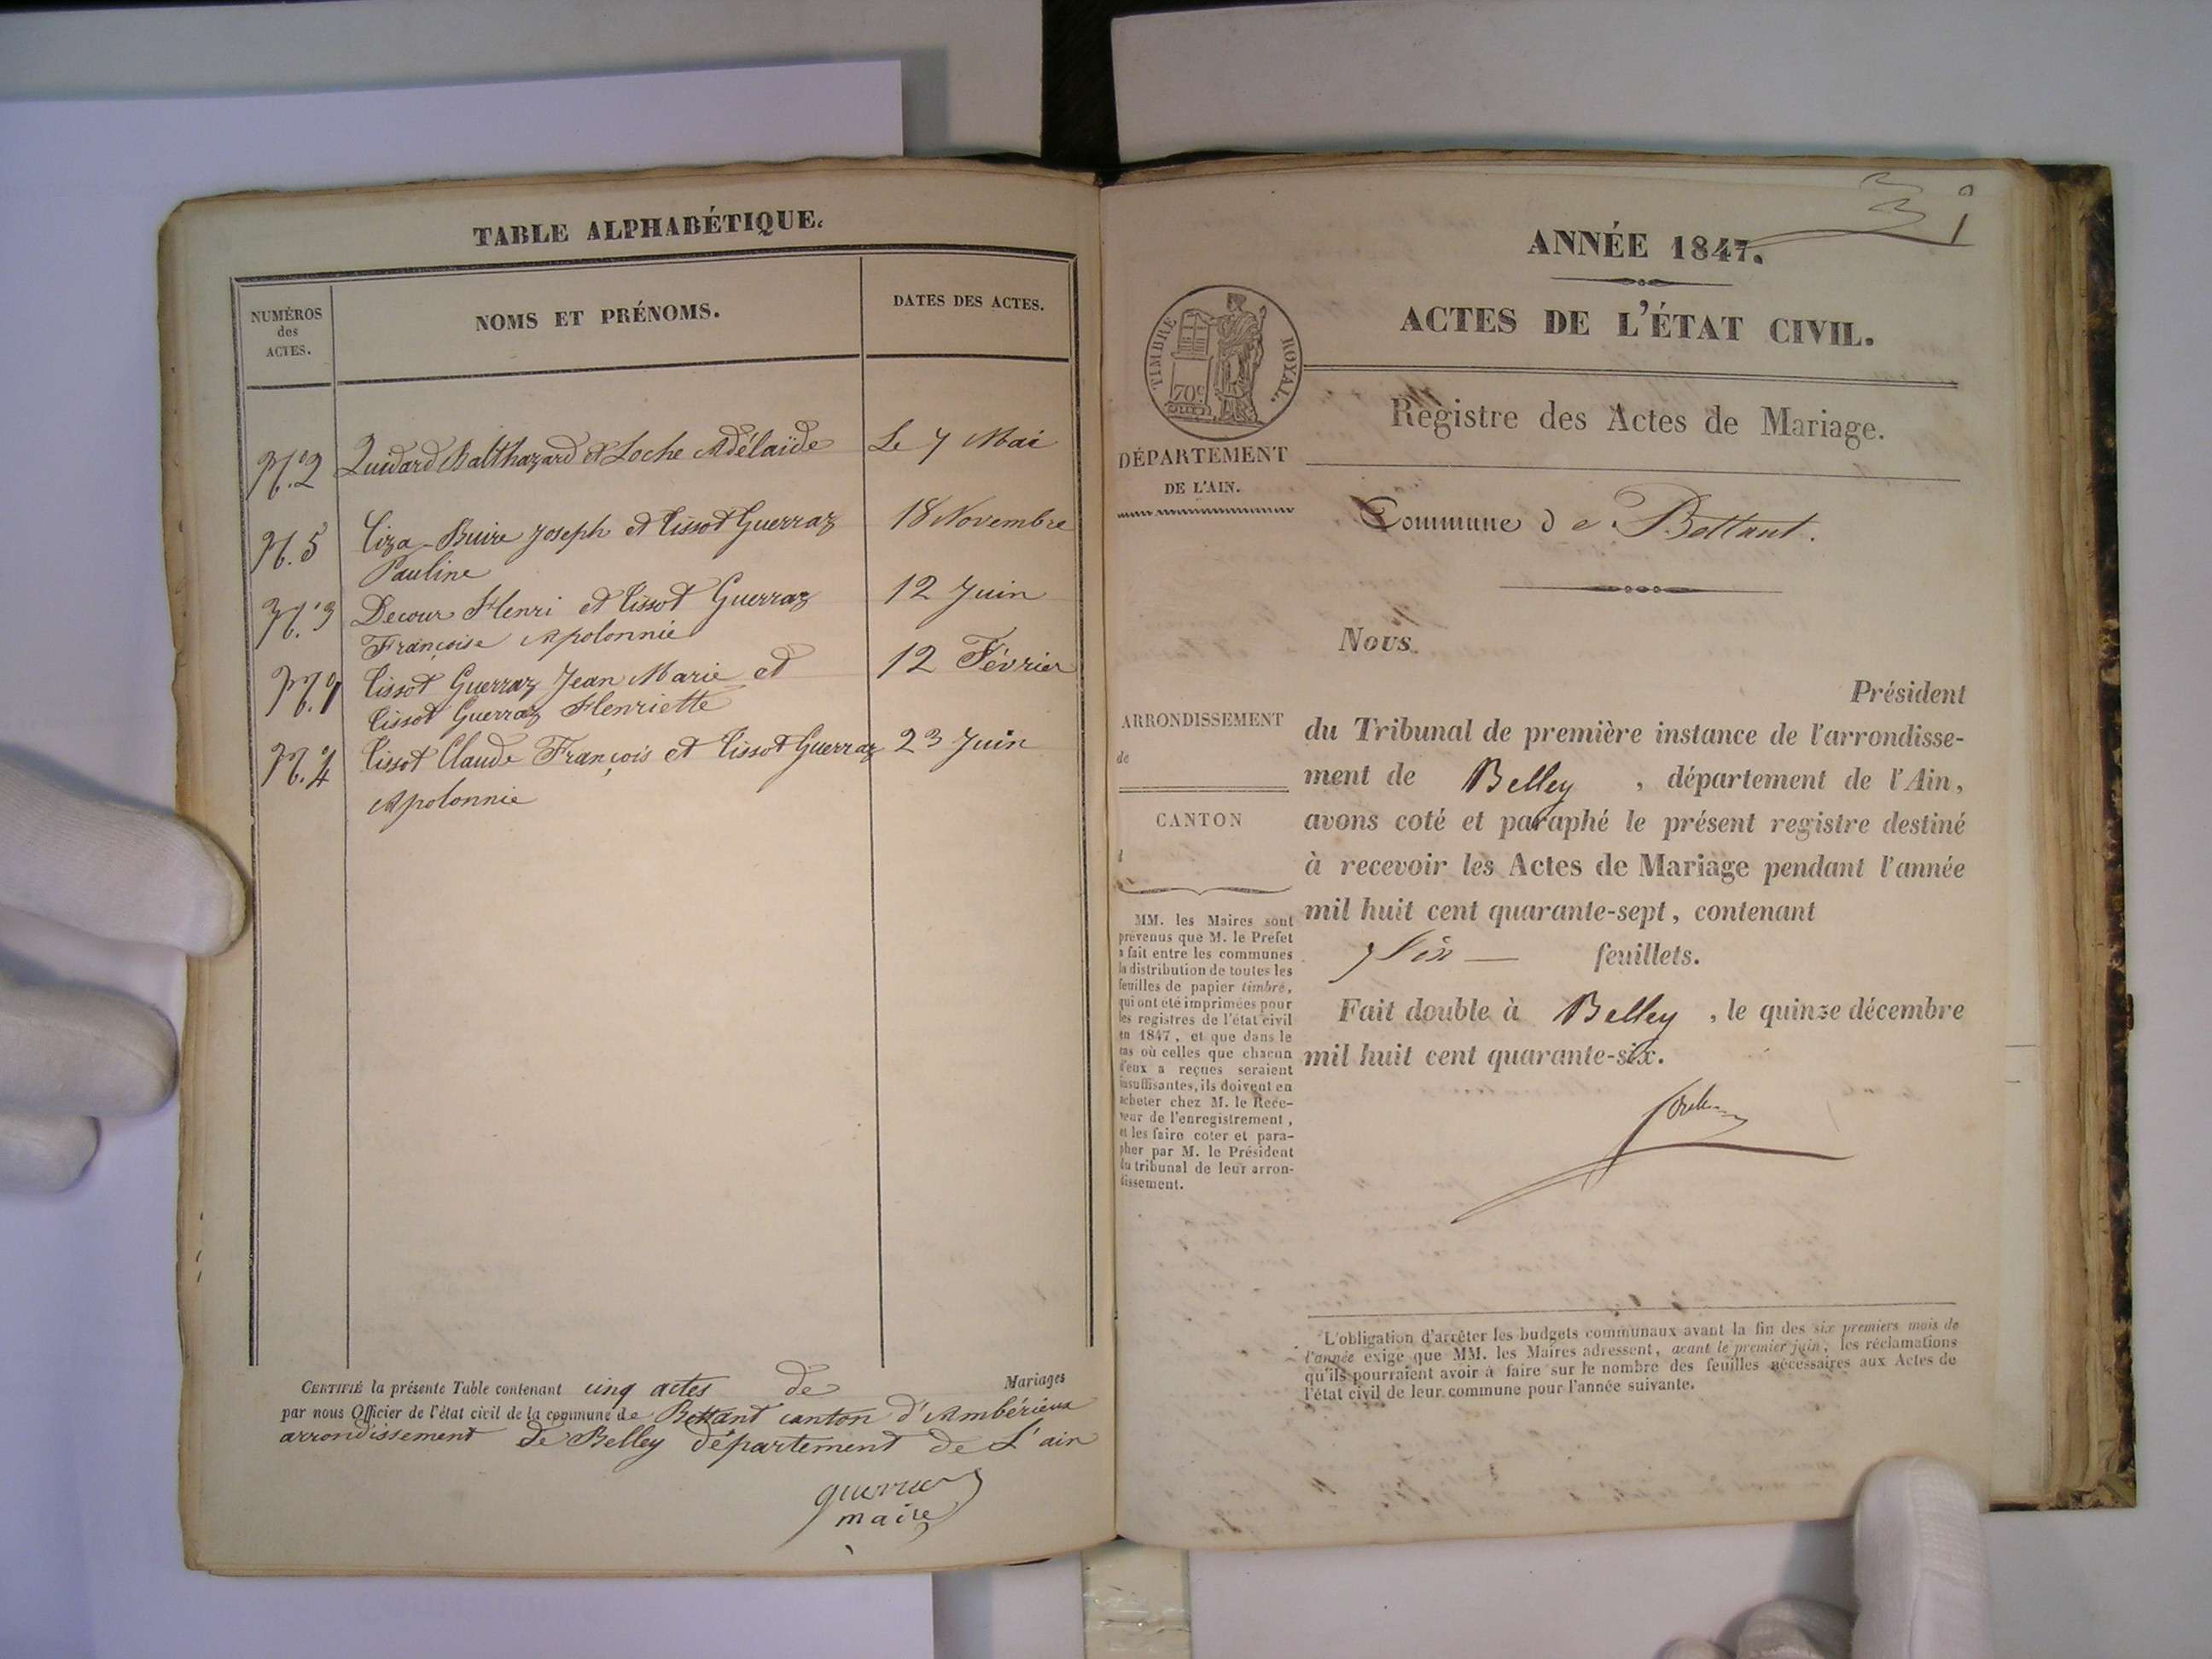 TABLE ALPHABÉTIQUE.
NUMÉROS
des
ACTES.
NOMS ET PRÉNOMS.
DATES DES ACTES.
N.° 2 Quidard Balthazard et Loche Adélaïde Le 7 Mai
N. 5 Tiza-Buire Joseph et Tissot Guerraz 18 Novembre
Pauline
N.° 3 Decour Henri et Tissot Guerraz 12 Juin
Françoise Apolonnie
N.° 1 Tissot Guerraz Jean Marie et 12 Février
Tissot Guerraz Henriette
N.° 4 Tissot Claude François et Tissot Guerraz 23 Juin
Apolonnie
CERTIFIÉ la présente Table contenant cinq actes de Mariages
par nous Officier de l'état civil de la commune de Bettant canton d'Ambérieux
arrondissement de Belley département de L'ain
maire
1
ANNÉE 1847.
ACTES DE L'ÉTAT CIVIL.
TIMBRE ROYAL.
70c
Registre des Actes de Mariage.
DÉPARTEMENT
DE L'AIN.
Commune de Bettant.
Nous
Président
ARRONDISSEMENT
de
CANTON
du Tribunal de première instance de l'arrondisse-
ment de Belley, département de l'Ain,
avons coté et paraphé le présent registre destiné
à recevoir les Actes de Mariage pendant l'année
mil huit cent quarante-sept, contenant
Six feuillets.
Fait double à Belley, le quinze décembre
mil huit cent quarante-six.
MM. les Maires sont
prévenus que M. le Préfet
a fait entre les communes
la distribution de toutes les
feuilles de papier timbré,
qui ont été imprimées pour
les registres de l'état civil
en 1847, et que dans le
cas où celles que chacun
d'eux a reçues seraient
insuffisantes, ils doivent en
acheter chez M. le Rece-
veur de l'enregistrement,
et les faire coter et para-
pher par M. le Président
du tribunal de leur arron-
dissement.
L'obligation d'arrêter les budgets communaux avant la fin des six premiers mois de
l'année exige que MM. les Maires adressent, avant le premier juin, les réclamations
qu'ils pourraient avoir à faire sur le nombre des feuilles nécessaires aux Actes de
l'état civil de leur commune pour l'année suivante.